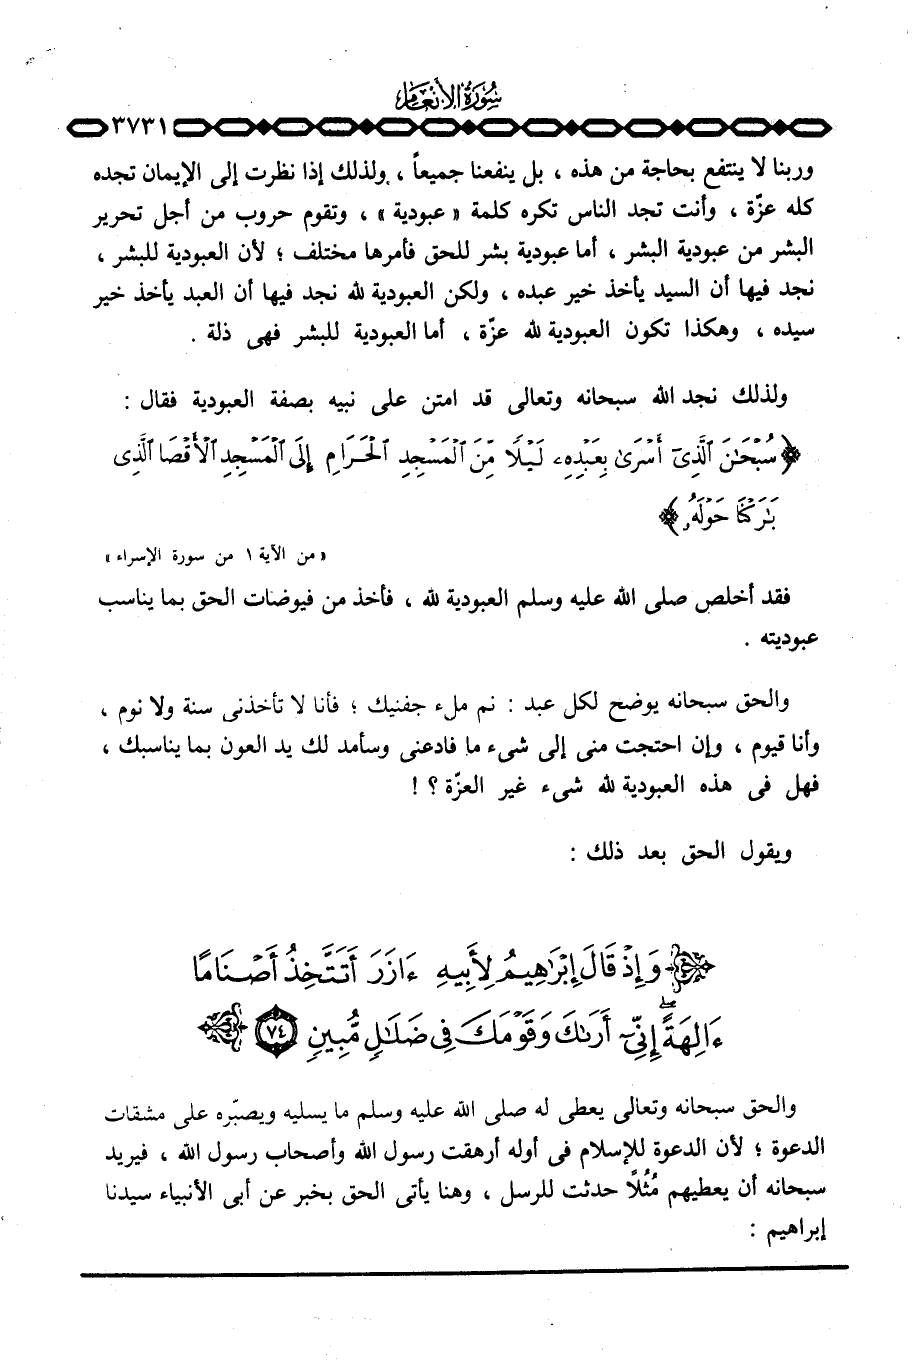 سُورَةُ الأَنْعَامِ
٣٧٣١
وربنا لا ينتفع بحاجة من هذه ، بل ينفعنا جميعاً ، ولذلك إذا نظرت إلى الإيمان تجده
كله عزّة ، وأنت تجد الناس تكره كلمة « عبودية » ، وتقوم حروب من أجل تحرير
البشر من عبودية البشر ، أما عبودية بشر للحق فأمرها مختلف ؛ لأن العبودية للبشر ،
نجد فيها أن السيد يأخذ خير عبده ، ولكن العبودية لله نجد فيها أن العبد يأخذ خير
سيده ، وهكذا تكون العبودية لله عزّة ، أما العبودية للبشر فهى ذلة .
ولذلك نجد الله سبحانه وتعالى قد امتن على نبيه بصفة العبودية فقال :
﴿ سُبْحَٰنَ ٱلَّذِىٓ أَسْرَىٰ بِعَبْدِهِۦ لَيْلًا مِّنَ ٱلْمَسْجِدِ ٱلْحَرَامِ إِلَى ٱلْمَسْجِدِ ٱلْأَقْصَا ٱلَّذِى
بَٰرَكْنَا حَوْلَهُۥ ﴾
« من الآية ١ من سورة الإسراء »
فقد أخلص صلى الله عليه وسلم العبودية لله ، فأخذ من فيوضات الحق بما يناسب
عبوديته .
والحق سبحانه يوضح لكل عبد : نم ملء جفنيك ؛ فأنا لا تأخذنى سنة ولا نوم ،
وأنا قيوم ، وإن احتجت منى إلى شىء ما فادعنى وسأمد لك يد العون بما يناسبك ،
فهل فى هذه العبودية لله شىء غير العزّة ؟ !
ويقول الحق بعد ذلك :
﴿ وَإِذْ قَالَ إِبْرَٰهِيمُ لِأَبِيهِ ءَازَرَ أَتَتَّخِذُ أَصْنَامًا
ءَالِهَةً ۖ إِنِّىٓ أَرَىٰكَ وَقَوْمَكَ فِى ضَلَٰلٍ مُّبِينٍ ٧٤ ﴾
والحق سبحانه وتعالى يعطى له صلى الله عليه وسلم ما يسليه ويصبّره على مشقات
الدعوة ؛ لأن الدعوة للإسلام فى أوله أرهقت رسول الله وأصحاب رسول الله ، فيريد
سبحانه أن يعطيهم مُثُلاً حدثت للرسل ، وهنا يأتى الحق بخبر عن أبى الأنبياء سيدنا
إبراهيم :